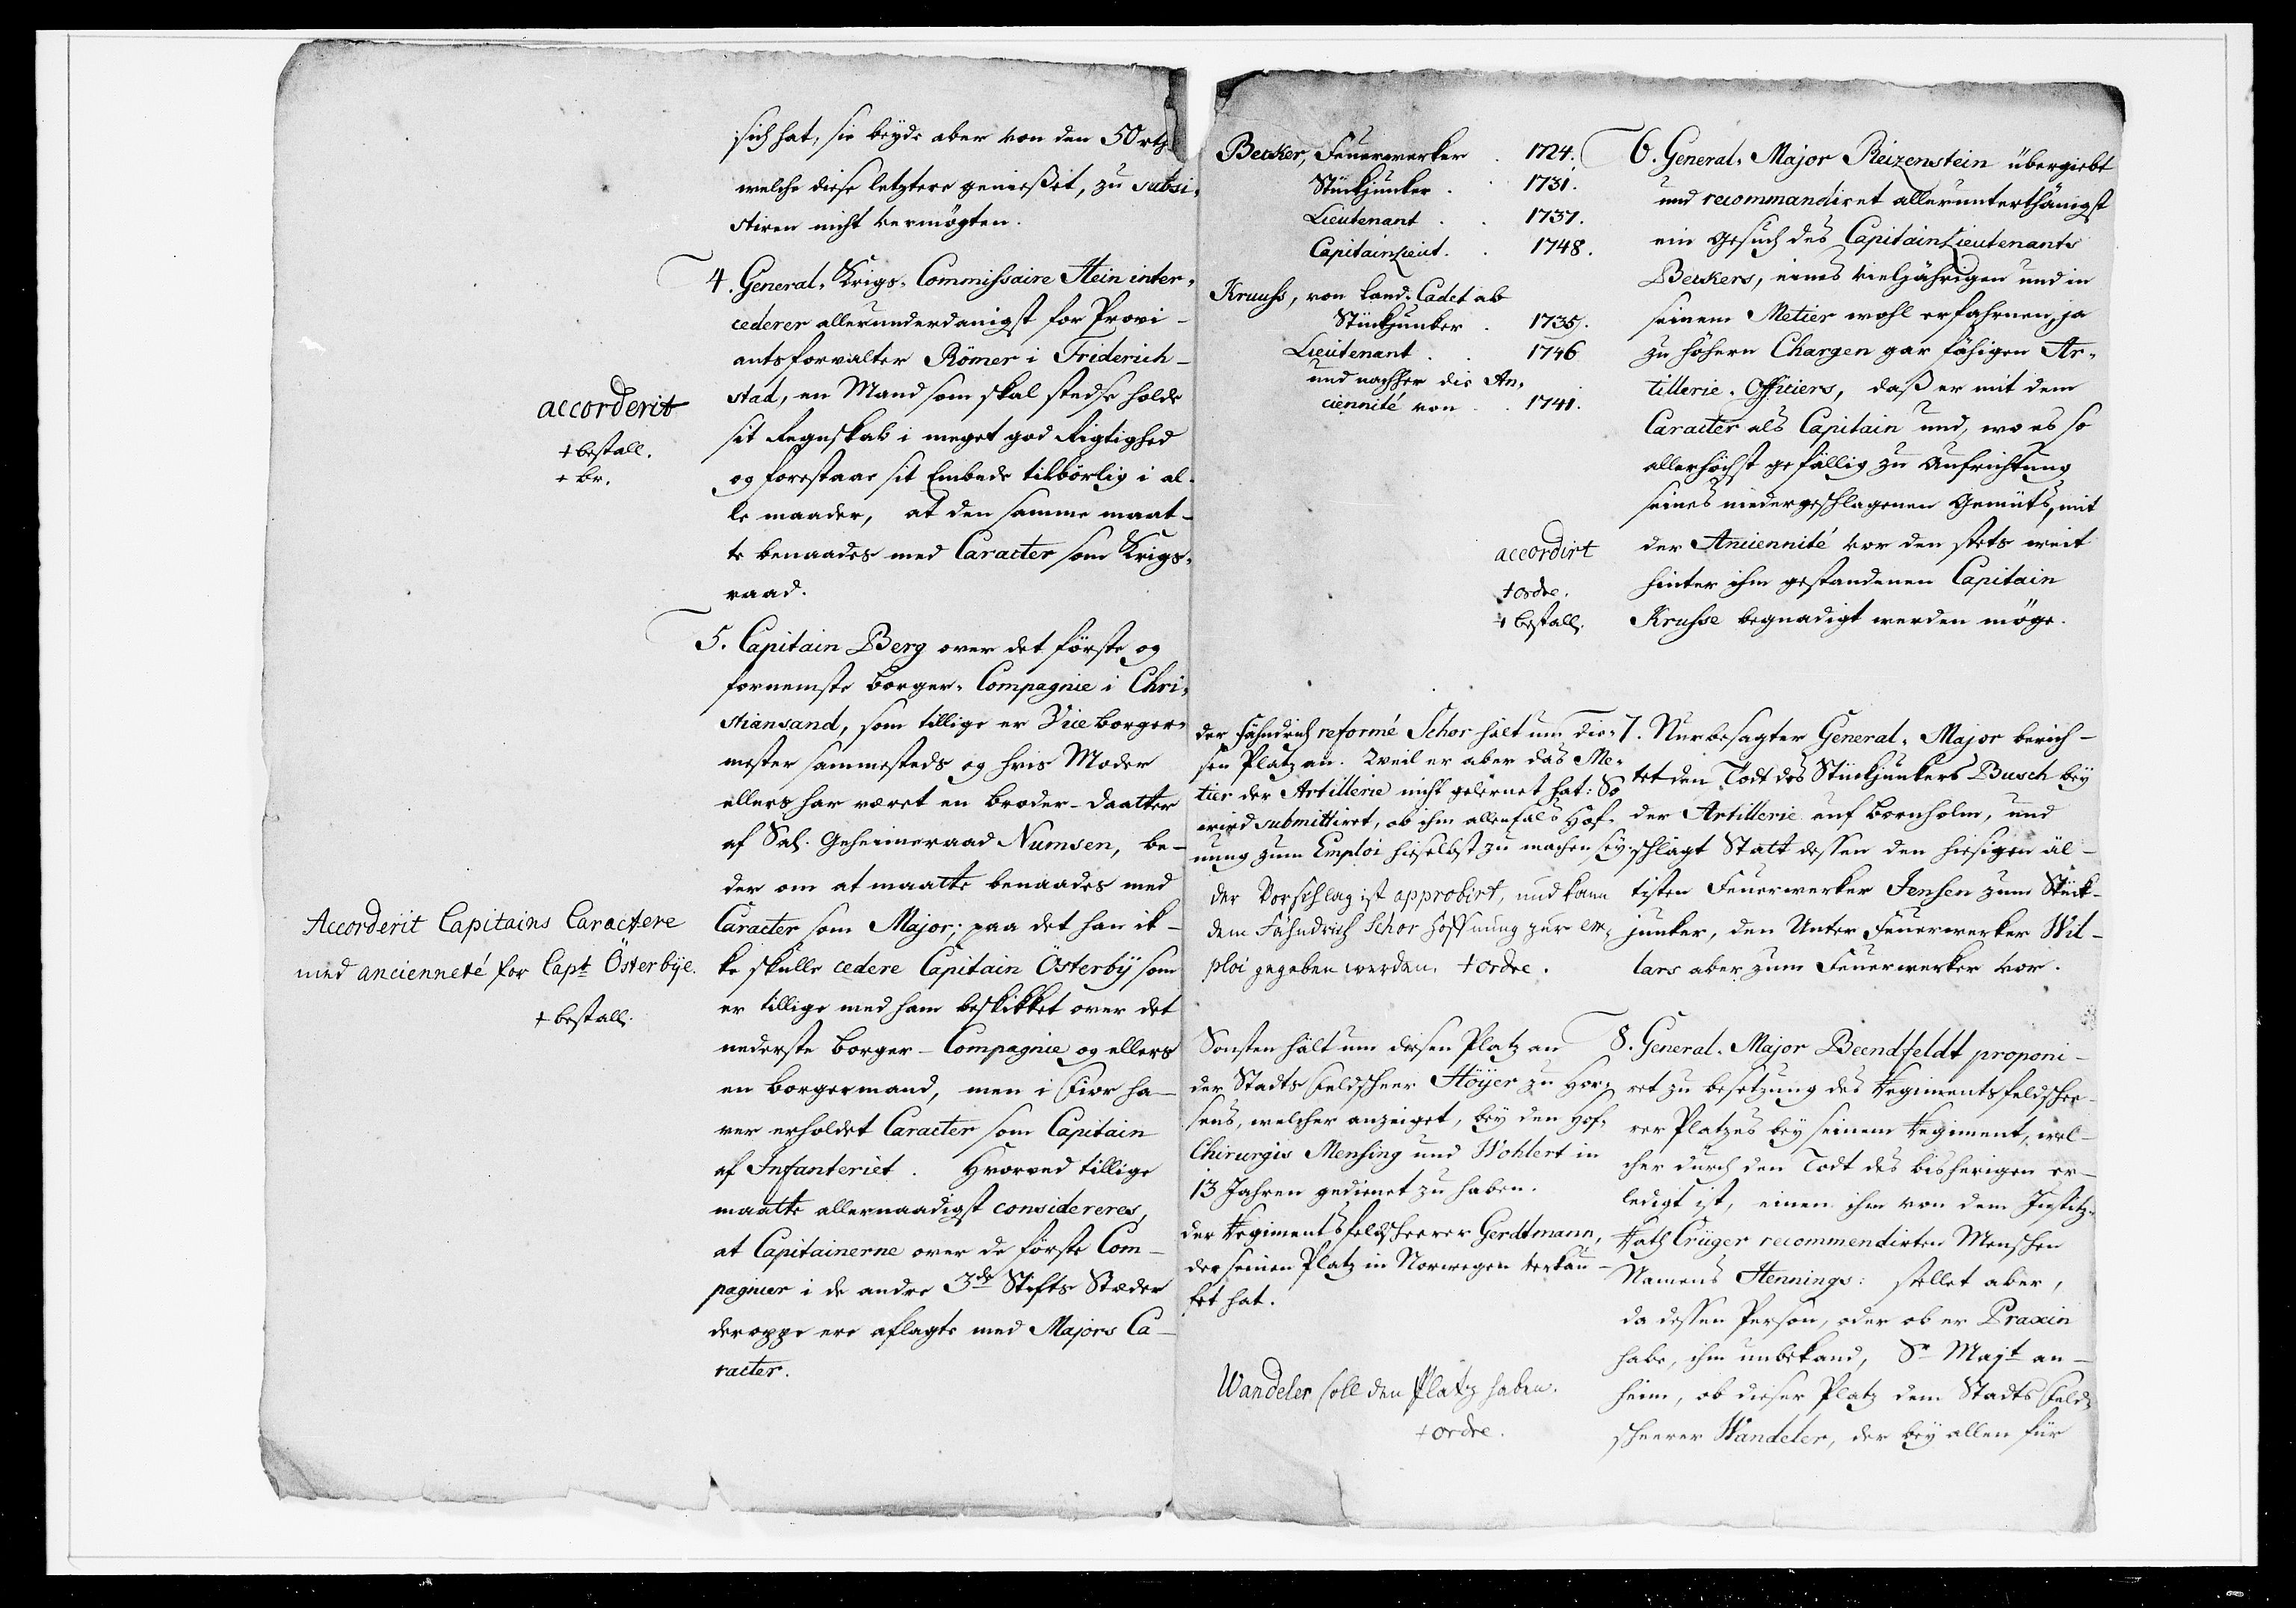 sich hat, sie beyde aber von den 50 rth
welche diese letztere genießet, zu subsi-
stiren nicht vermögten.
4. General-Krigs-Commissaire Stein inter-
cederer allerunderdanigst for Provi-
antsforvalter Römer i Friderich-
stad, en Mand som skal stedse holde
sit Regnskab i meget god Rigtighed
og forestaae sit Embede tilbörlig i al-
le maader, at den samme maat-
te benaades med Caracter som Krigs-
raad.
accorderit
+ bestall.
+ br.
5. Capitain Berg over det förste og
fornemste borger-Compagnie i Chri-
stiansand, som tillige er Vice borger-
mester sammesteds og hvis Moder
ellers har været en broder-daatter
af Sal. Geheimeraad Numsen, be-
der om at maatte benaades med
Caracter som Major; paa det han ik-
ke skulle cedere Capitain Österbÿ som
er tillige med ham beskikket over det
nederste borger-Compagnie og ellers
en borgermand, men i Fior ha-
ver erholdet Caracter som Capitain
af Infanteriet. Hvorved tillige
maatte allernaadigst considereres,
at Capitainerne over de förste Com-
pagnier i de andre 3de Stifts Stæder
deroppe ere aflagte med Majors Ca-
racter.
Accorderit Capitains Caractere
med ancienneté for Capt Österbÿe.
+ bestall.
Becker, Feuerwerker . 1724.
Stückjunker . . 1731.
Lieutenant . . 1737.
CapitainLieut. . 1748.
Kruuss, von Land-Cadet ab
Stückjunker . 1735.
Lieutenant . . 1746
und nachher die An-
ciennité von . . 1741.
6. General-Major Reizenstein übergiebt
und recommandiret allerunterthänigst
ein Gesuch des CapitainLieutenants
Beckers, eines vieljährigen und in
seinem Metier wohl erfahrnen, ja
zu höhern Chargen gar fähigen Ar-
tillerie-Officiers, daß er mit dem
Caracter als Capitain und, wo es so
allerhöchst gefällig zu Aufrichtung
seines niedergeschlagenen Gemüts, mit
der Anciennité vor den stets weit
hinter ihm gestandenen Capitain
Krusse begnadigt werden möge.
accordirt
+ ordre.
+ bestall.
der Fähndrich reformé Schor hält um die-
sen Platz an. Weil er aber das Me-
tier der Artillerie nicht gelernet hat: So
wird submittiret, ob ihm allenfals Hof-
nung zum Emploi hieselbst zu machen sey.
der Vorschlag ist approbirt, und kann
dem Fähndrich Schor Hoffnung zur em-
ploi gegeben werden. + ordre.
7. Nurbesagter General-Major berich-
tet den Todt des Stückjunkers Busch bey
der Artillerie auf Bornholm, und
schlägt Statt dessen den hiesigen äl-
tisten Feuerwerker Jensen zum Stück-
junker, den Unter Feuerwerker Wil-
lars aber zum Feuerwerker vor.
Sonsten hält um diesen Platz an
der Stadts Feldscheer Höÿer zu Hor-
sens, welcher anzeiget, bey den Hof-
Chirurgis Mensing und Wohlert in
13 Jahren gedienet zu haben.
der Regimentsfeldscheerer Gerdtmann,
der seinen Platz in Norwegen verkau-
fet hat.
Wandeler soll den Platz haben.
+ ordre.
8. General-Major Beendfeldt proponi-
ret zu besetzung des Regimentsfeldschee-
rer Platzes bey seinem Regiment, wel-
cher durch den Todt des bisherigen er-
ledigt ist, einen ihm von dem Justitz-
Rath Crüger recommendirten Menschen
Namens Hennings: stellet aber,
da dessen Person, oder ob er Praxin
habe, ihm unbekand, Sr Majt an-
heim, ob dieser Platz dem Stadts Feld-
scheerer Wandeler, der bey allen für